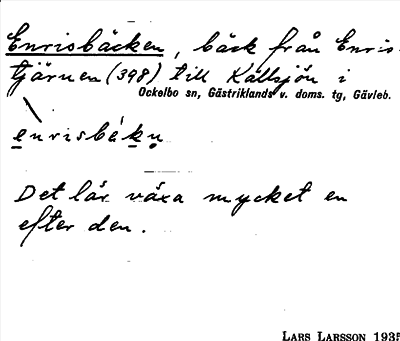 Enrisbäcken, bäck från Enris-
tjärnen (398) till Kallsjön i
Ockelbo sn, Gästriklands v. doms. tg, Gävleb.
enrisbékn
Det lär växa mycket en
efter den.
LARS LARSSON 1935